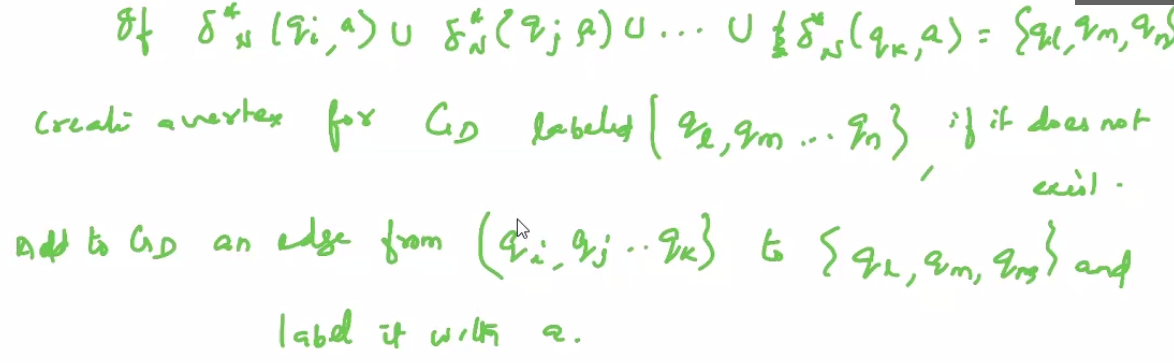 If δ*_N (q_i, a) ∪ δ*_N (q_j, a) ∪ ... ∪ δ*_N (q_k, a) = {q_l, q_m, q_n}
Create a vertex for G_D labeled {q_l, q_m ... q_n}, if it does not
exist.
Add to G_D an edge from {q_i, q_j .. q_k} to {q_l, q_m, q_n} and
label it with a.